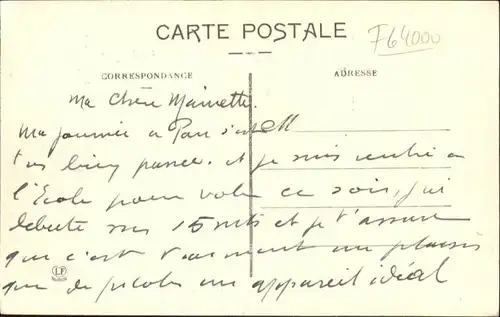 CARTE POSTALE
F64000
CORRESPONDANCE
ADRESSE
Ma chère Mainette.
Ma journée a Pau s'est
très bien passée. et je suis rentré a
l'Ecole pour voler ce soir, j'ai
débuté sur 15 mts et je t'assure
que c'est vraiment un plaisir
que de piloter un appareil idéal
LF